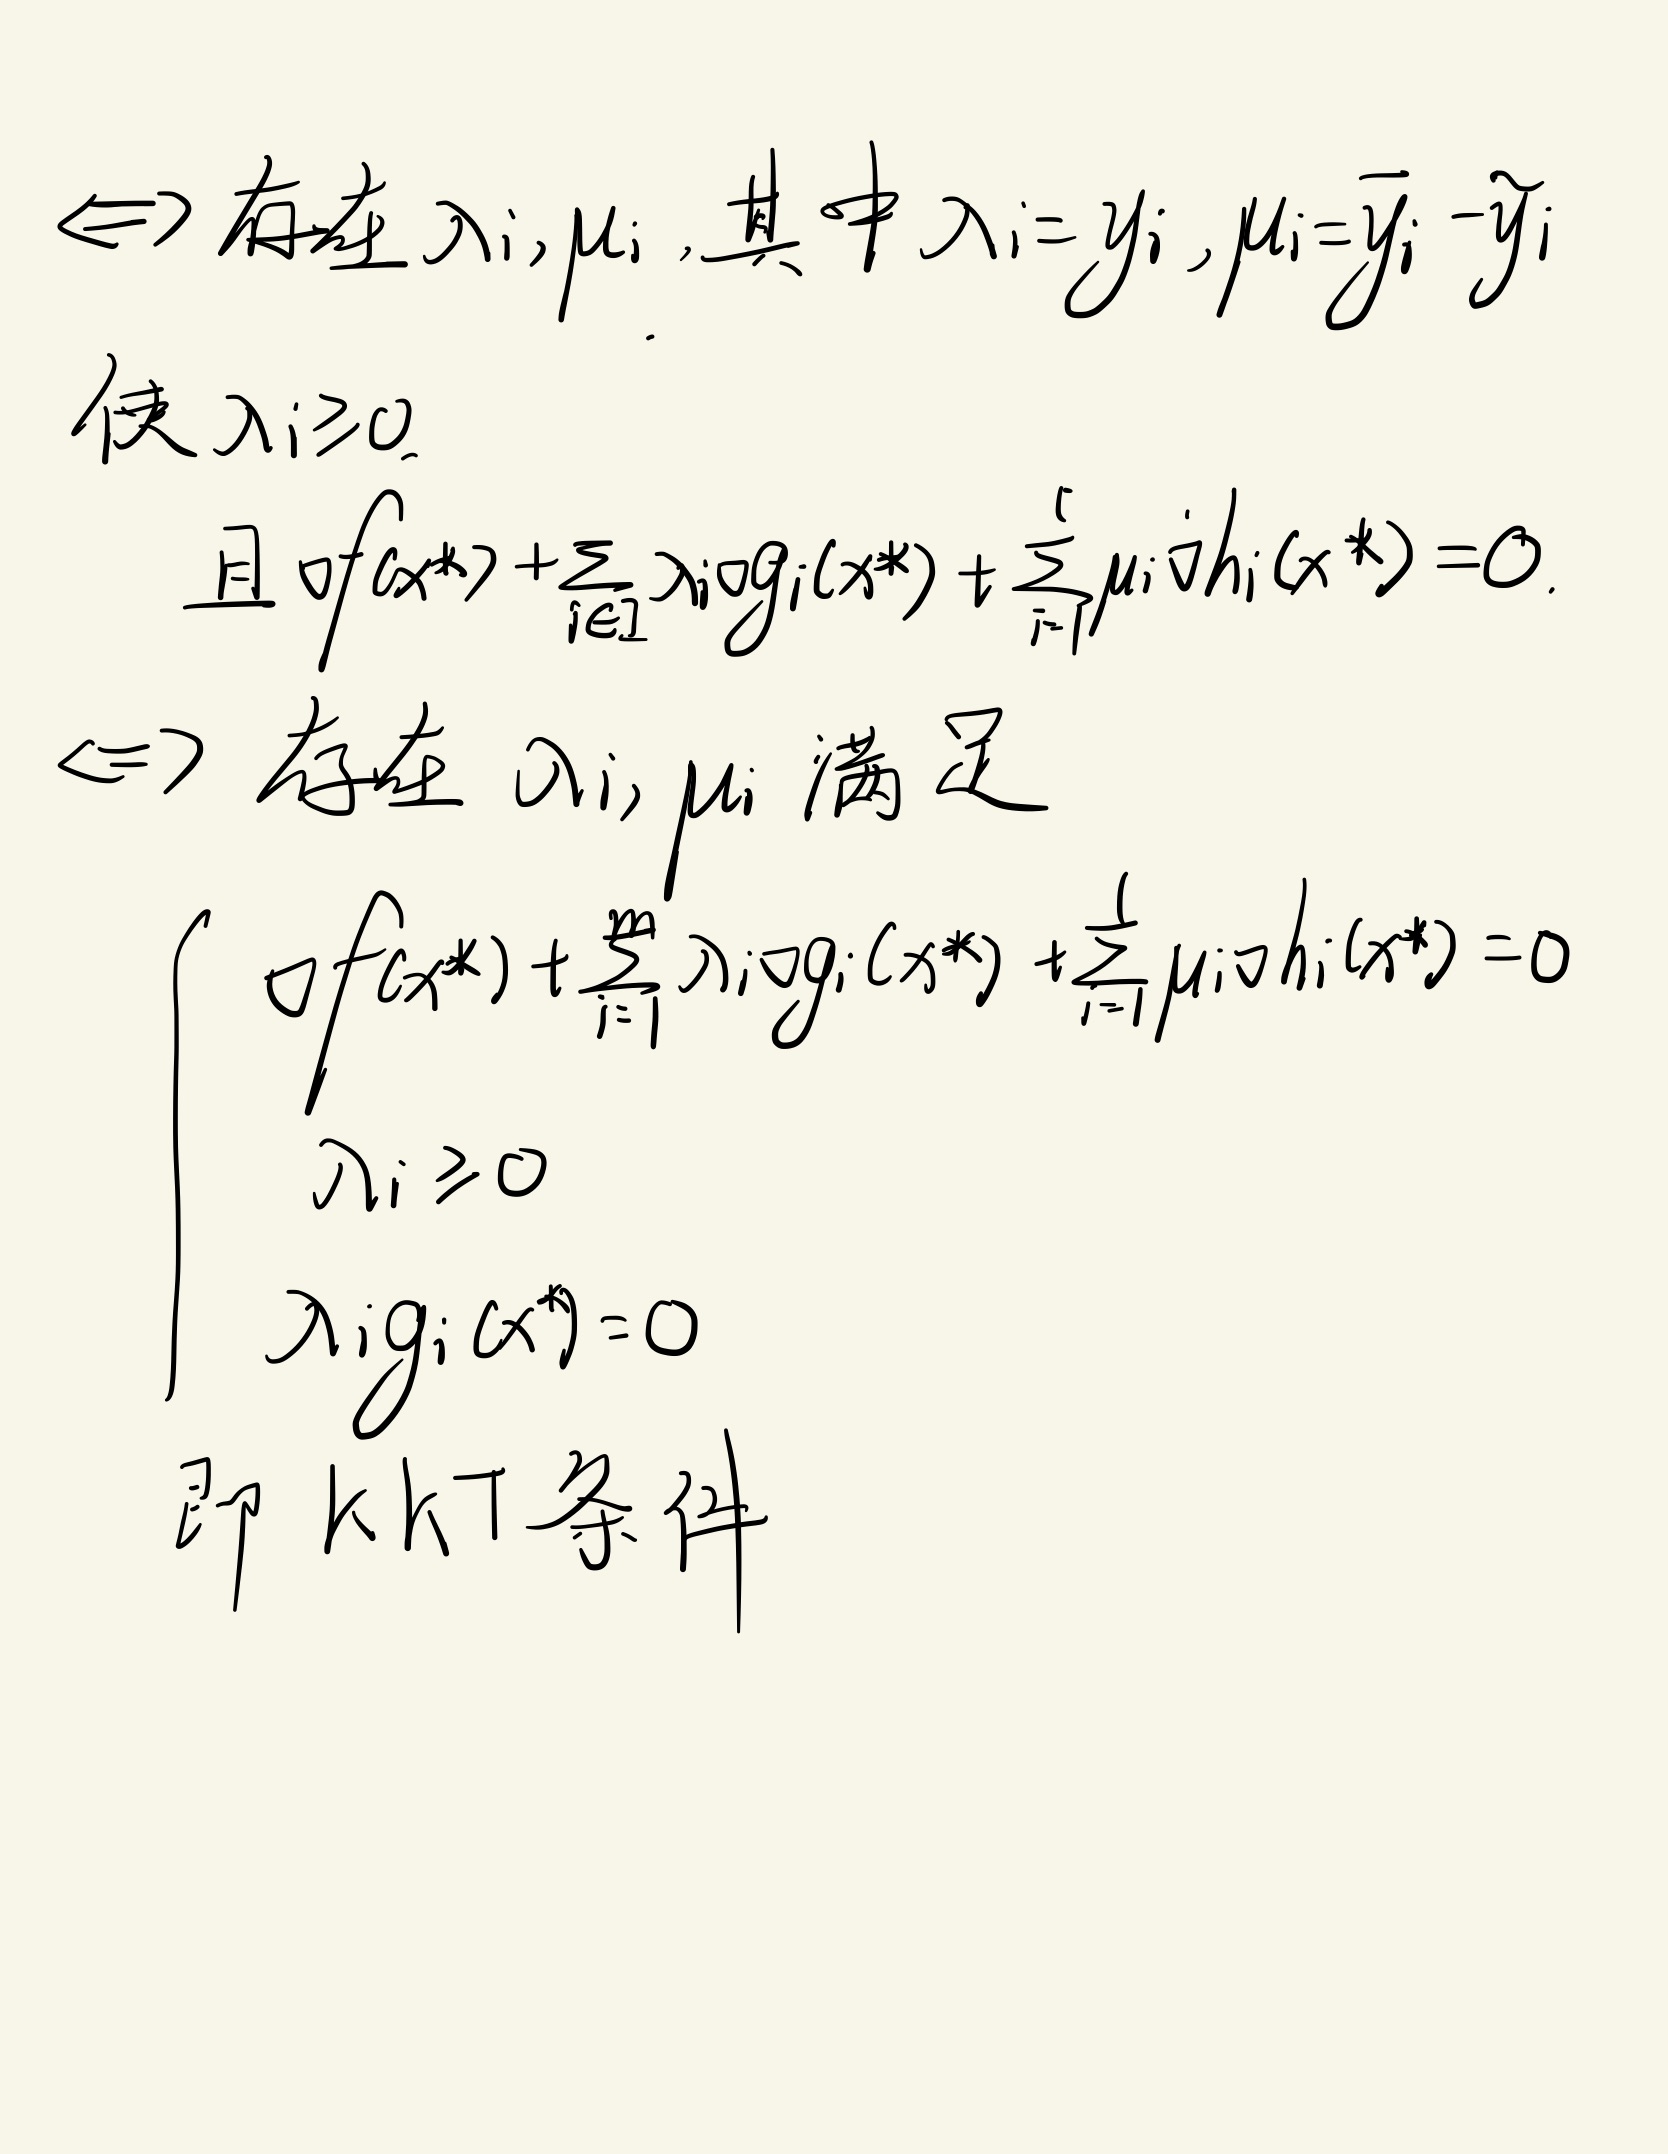 <=> 存在 λi, μi, 其中 λi = yi, μi = ȳi - ỹi
使 λi ≥ 0.
且 ∇f(x*) + ∑_{i∈I} λi∇gi(x*) + ∑_{i=1}^{l} μi∇hi(x*) = 0.
<=> 存在 λi, μi 满足
∇f(x*) + ∑_{i=1}^{m} λi∇gi(x*) + ∑_{i=1}^{l} μi∇hi(x*) = 0
λi ≥ 0
λigi(x*) = 0
即 KKT条件